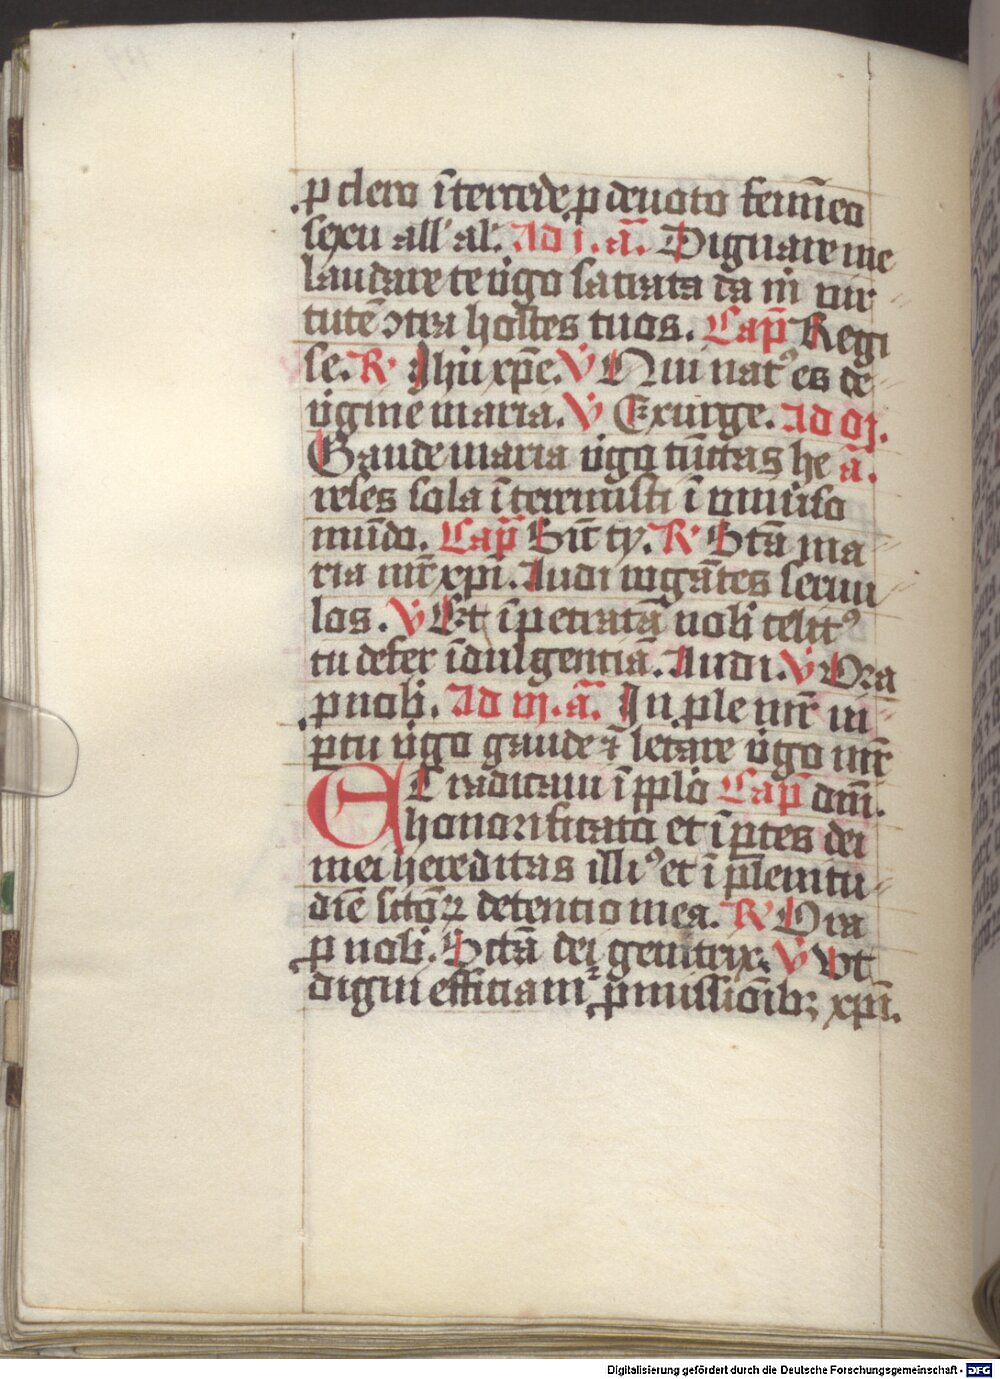 ꝓ clero ī̇tercede ꝓ deuoto femīeo
sexu all' al'. Ad j. ā. Dignare me
laudare te v̇go sacrata da m̄ vir
tutē ↄtra hostes tuos. Cap̄ Regi
se. R' Jhū xp̄e. V̇ Qui natꝰ es de
v̇gine maria. V̇ Exurge. Ad vj.
Gaude maria v̇go cūctas he ā.
reses sola īteremisti ī vniuerso
mūdo. Cap̄ Sic̄ cy. R' Sctā ma
ria mr̄ xpi. Audi rogātes seruu
los. V̇ Et īpetratā nob̄ celitꝰ
tu defer īdulgentiā. Audi. V̇ Ora
ꝓ nob̄. Ad iij. ā. Jn ꝓle mr̄ in
ꝑtu v̇go gaude ⁊ letare v̇go mr̄
Et radicaui ī pp̄lo Cap̄ dn̄i.
honorificato et ī ꝑtes dei
mei hereditas illiꝰ et ī plenitu
diē sctōꝝ detentio mea. R' Ora
ꝓ nob̄. Sctā dei genitrix. V̇ Vt
digni efficiam̄ ꝓmissiōibꝫ xpi.
Digitalisierung gefördert durch die Deutsche Forschungsgemeinschaft - DFG